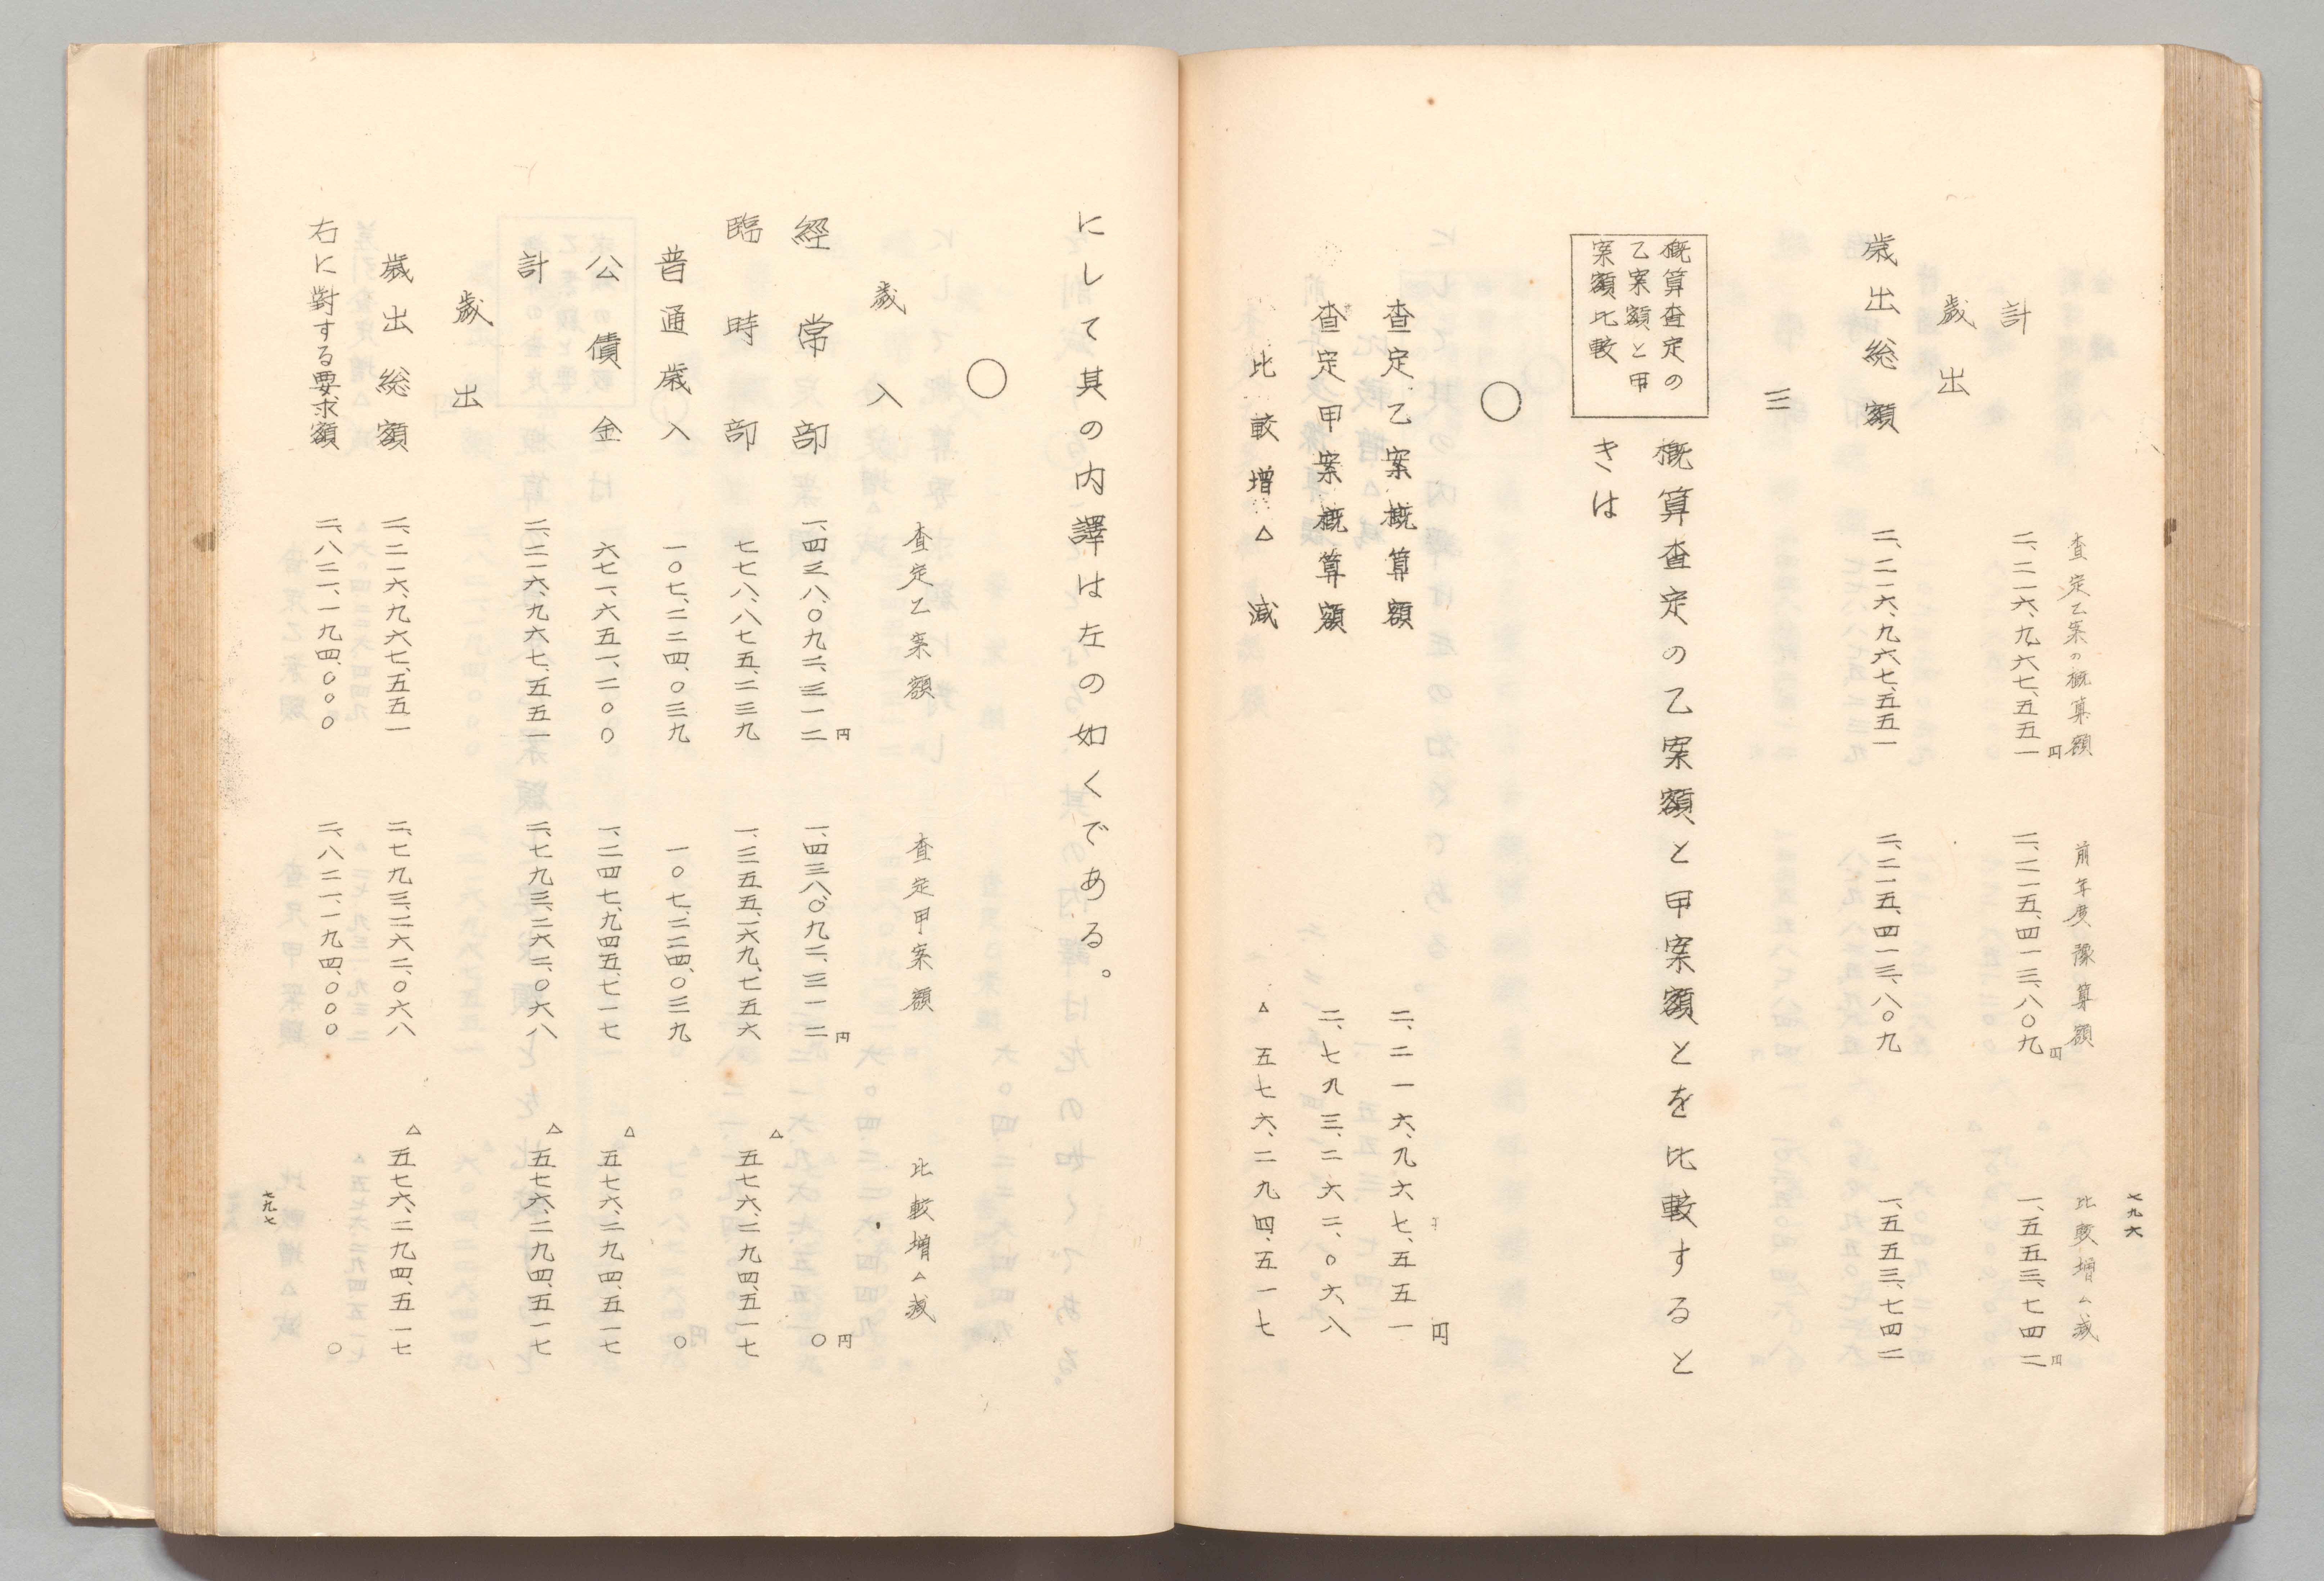 七九六
査定乙案の概算額 前年度豫算額 比較増△減
計 二、二一六、九六七、五五一円 二、二一五、四一三、八〇九円 一、五五三、七四二円
歳出
歳出総額 二、二一六、九六七、五五一 二、二一五、四一三、八〇九 一、五五三、七四二
三
概算査定の
乙案額と甲
案額比較
概算査定の乙案額と甲案額とを比較すると
きは
〇
査定乙案概算額 二、二一六、九六七、五五一円
査定甲案概算額 二、七九三、二六二、〇六八
比較増△減 △五七六、二九四、五一七
にして其の内譯は左の如くである。
〇
査定乙案額 査定甲案額 比較増△減
歳入
經常部 一、四三八、〇九二、三一二円 一、四三八、〇九二、三一二円 〇円
臨時部 七七八、八七五、二三九 一、三五五、一六九、七五六 △五七六、二九四、五一七
普通歳入 一〇七、二二四、〇三九 一〇七、二二四、〇三九 〇
公債金 六七一、六五一、二〇〇 一、二四七、九四五、七一七 △五七六、二九四、五一七
計 二、二一六、九六七、五五一 二、七九三、二六二、〇六八 △五七六、二九四、五一七
歳出
歳出総額 二、二一六、九六七、五五一 二、七九三、二六二、〇六八 △五七六、二九四、五一七
右に對する要求額 二、八二一、一九四、〇〇〇 二、八二一、一九四、〇〇〇 〇
七九七